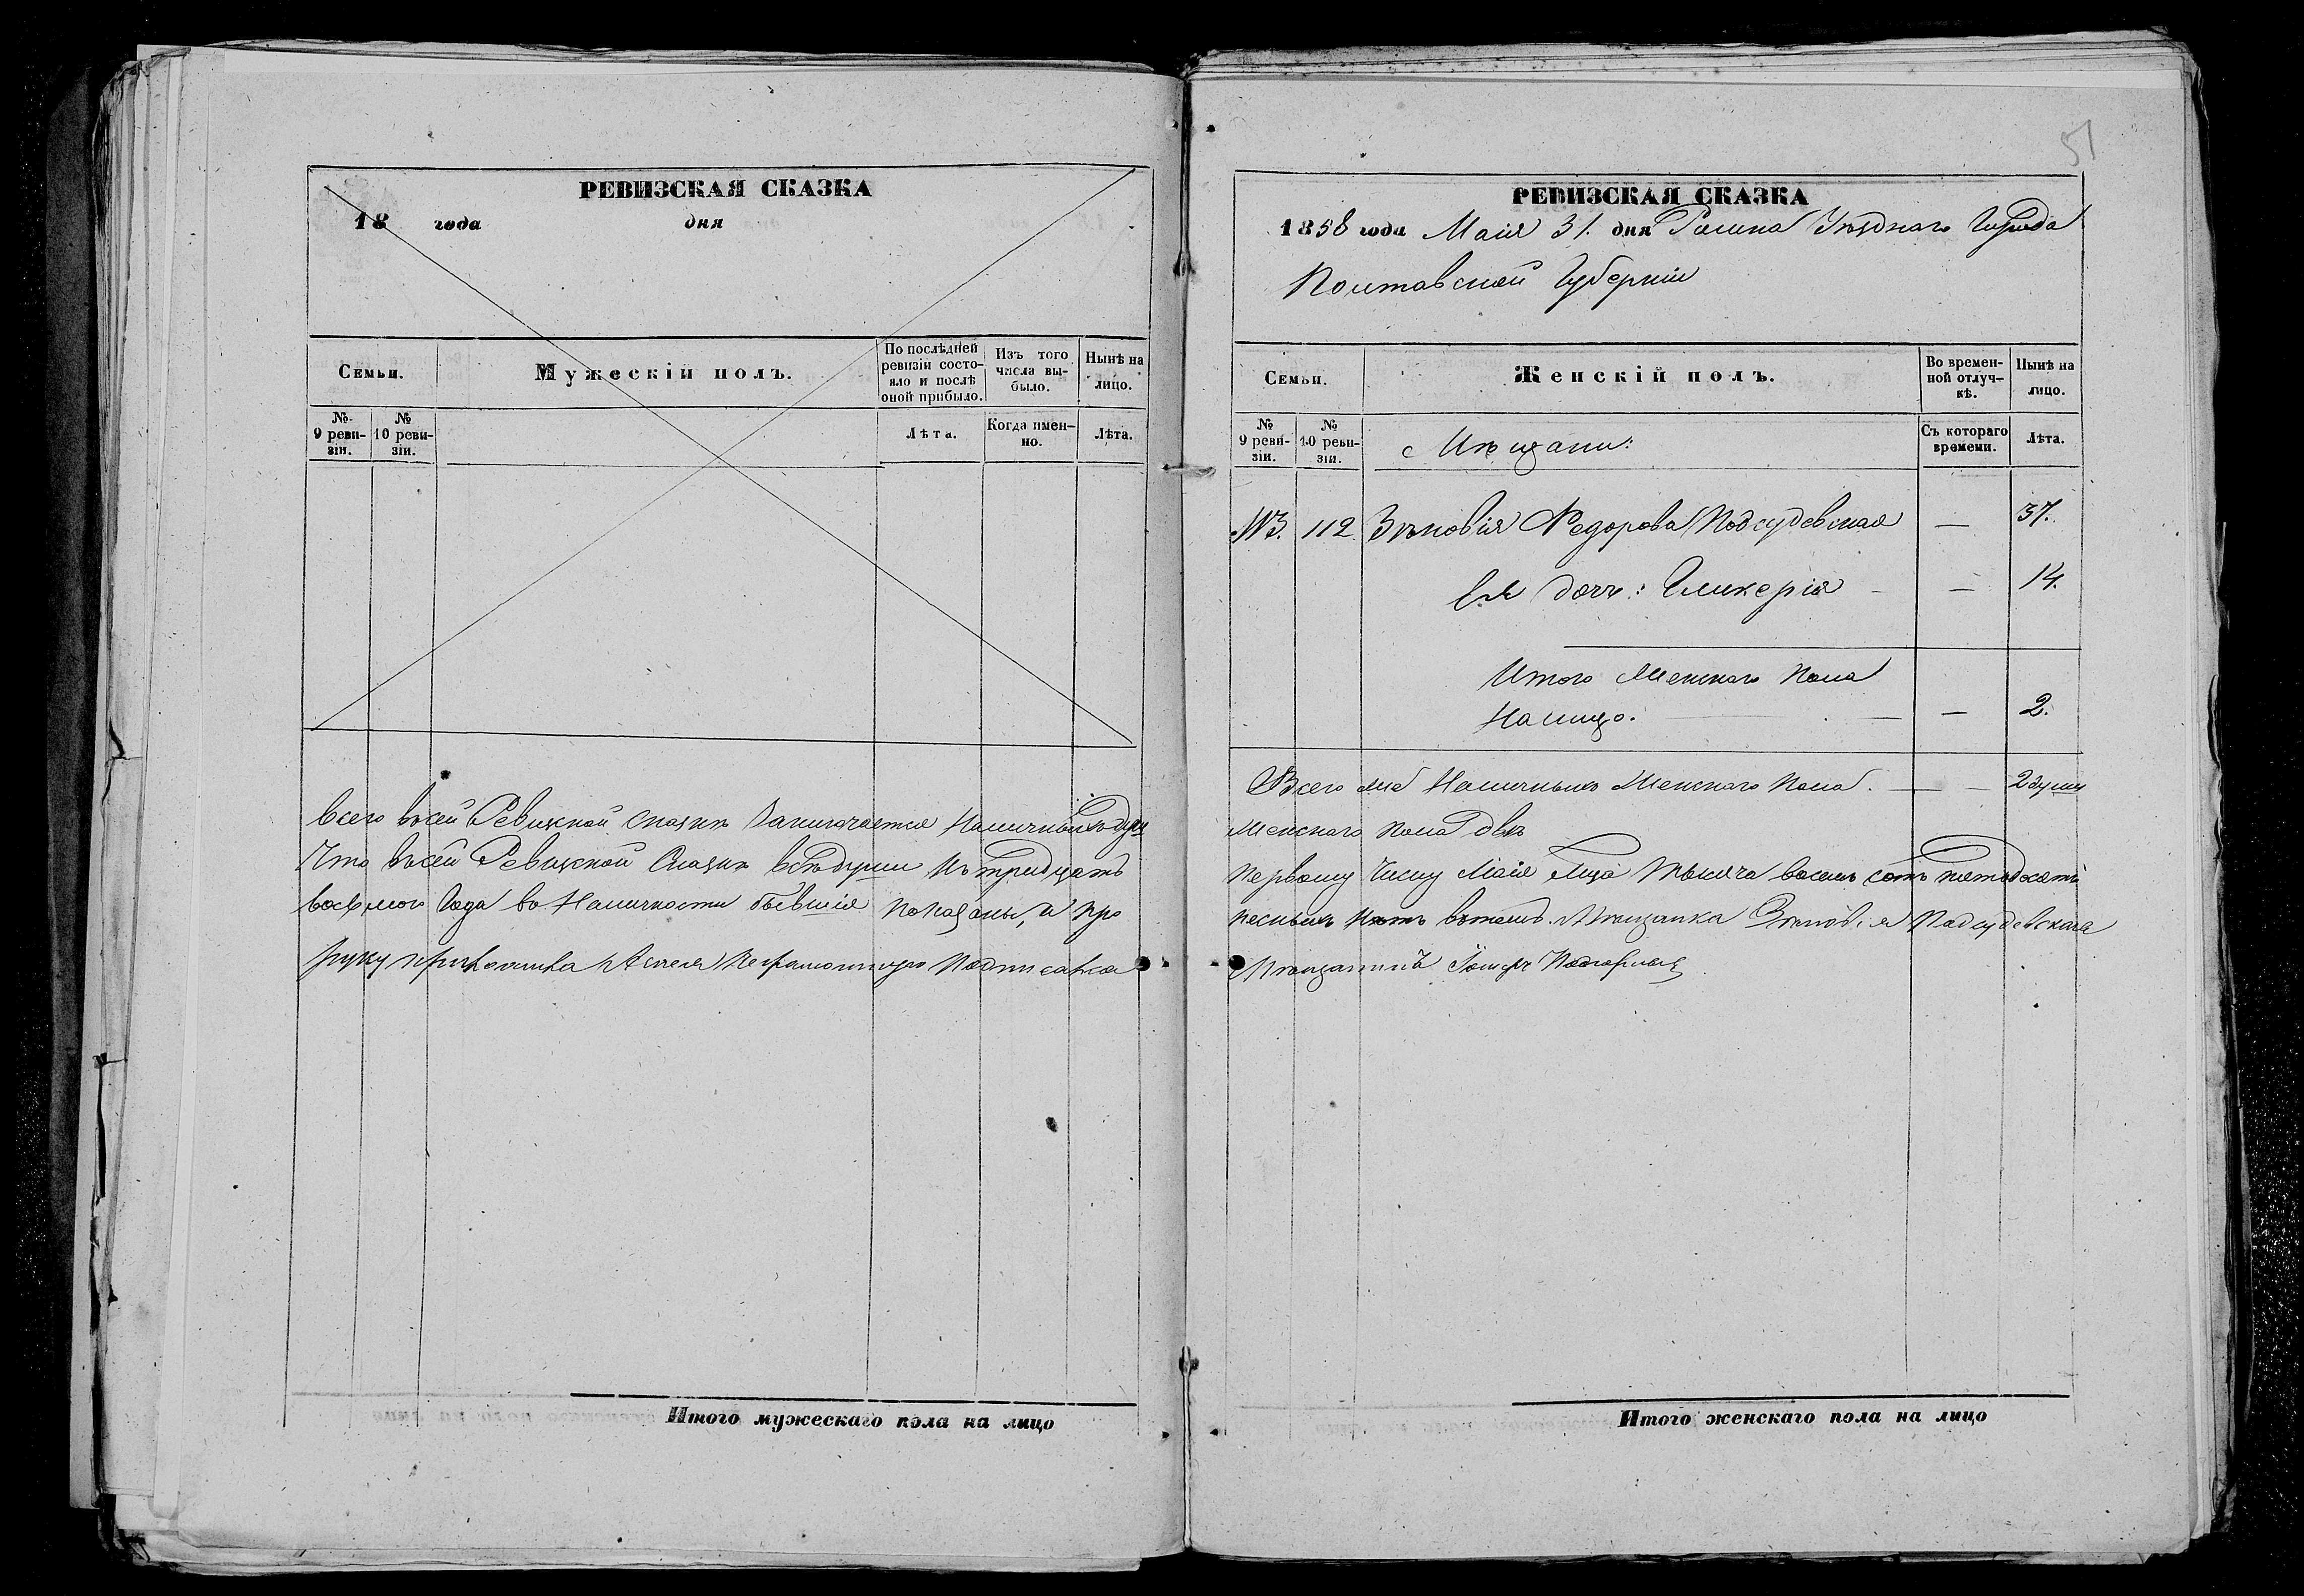 РЕВИЗСКАЯ СКАЗКА
18 года дня
Семьи.
Мужескій полъ.
По послѣдней ревизіи состояло и послѣ оной прибыло.
Изъ того числа выбыло.
Нынѣ на лицо.
№ 9 ревизіи.
№ 10 ревизіи.
Лѣта.
Когда именно.
Лѣта.
Всего въ сей Ревизской сказкѣ Заключается Наличныхъ душъ
Что въ сей Ревизской Сказкѣ всѣ души Къ тридцать
восьмого Года во Наличности бывшія показаны, и про
руку приложила А вместо неграмотную Подписался
Итого мужескаго пола на лицо
51
РЕВИЗСКАЯ СКАЗКА
1858 года Маія 31. дня Ромна Уѣзднаго Города
Полтавской Губерніи
Семьи.
Женскій полъ.
Во временной отлучкѣ.
Нынѣ на лицо.
№ 9 ревизіи.
№ 10 ревизіи.
Мѣщани:
Съ котораго времени.
Лѣта.
112 Зѣновія Федорова Подсудевская — 37.
Ея дочь: Гликерія — 14.
Итого Женскаго Пола
Налицо. — 2.
Всего Наличныхъ Женскаго Пола. — 2 души
Женскаго пола двѣ
Первому Числу Маія Мца Тысяча восемь сотъ пятьдесятъ
Нетъ въ томъ Мѣщанка Зѣновія Подсудевская
Мѣщанинъ
Итого женскаго пола на лицо